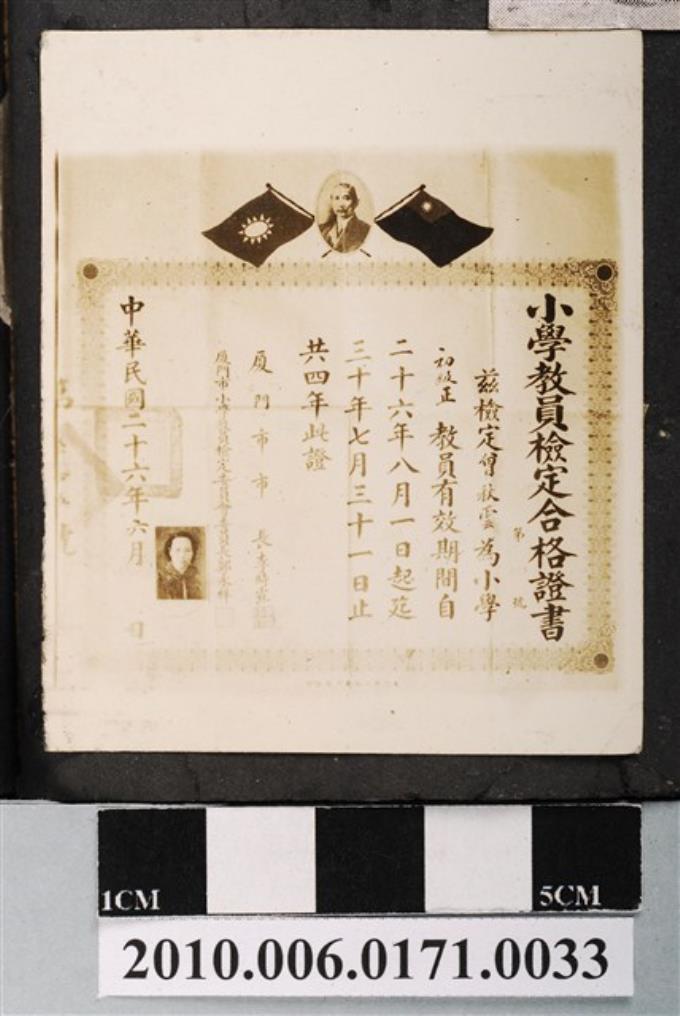 小學教員檢定合格證書
第 號
茲檢定曾秋雲為小學
初級正 教員有效期間自
二十六年八月一日起迄
三十年七月三十一日止
共四年此證
廈門市市長李時霖
廈門市小學教員檢定委員會委員長
中華民國二十六年六月 日
1CM
5CM
2010.006.0171.0033